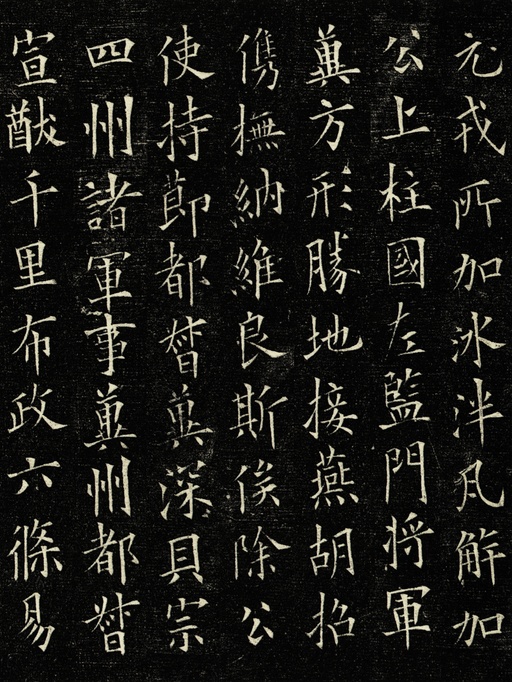 元戎所加冰泮瓦解加
公上柱國左監門將軍
冀方形勝地接燕胡招
儁撫納維良斯俟除公
使持節都督冀深貝宗
四州諸軍事冀州都督
宣猷千里布政六條易